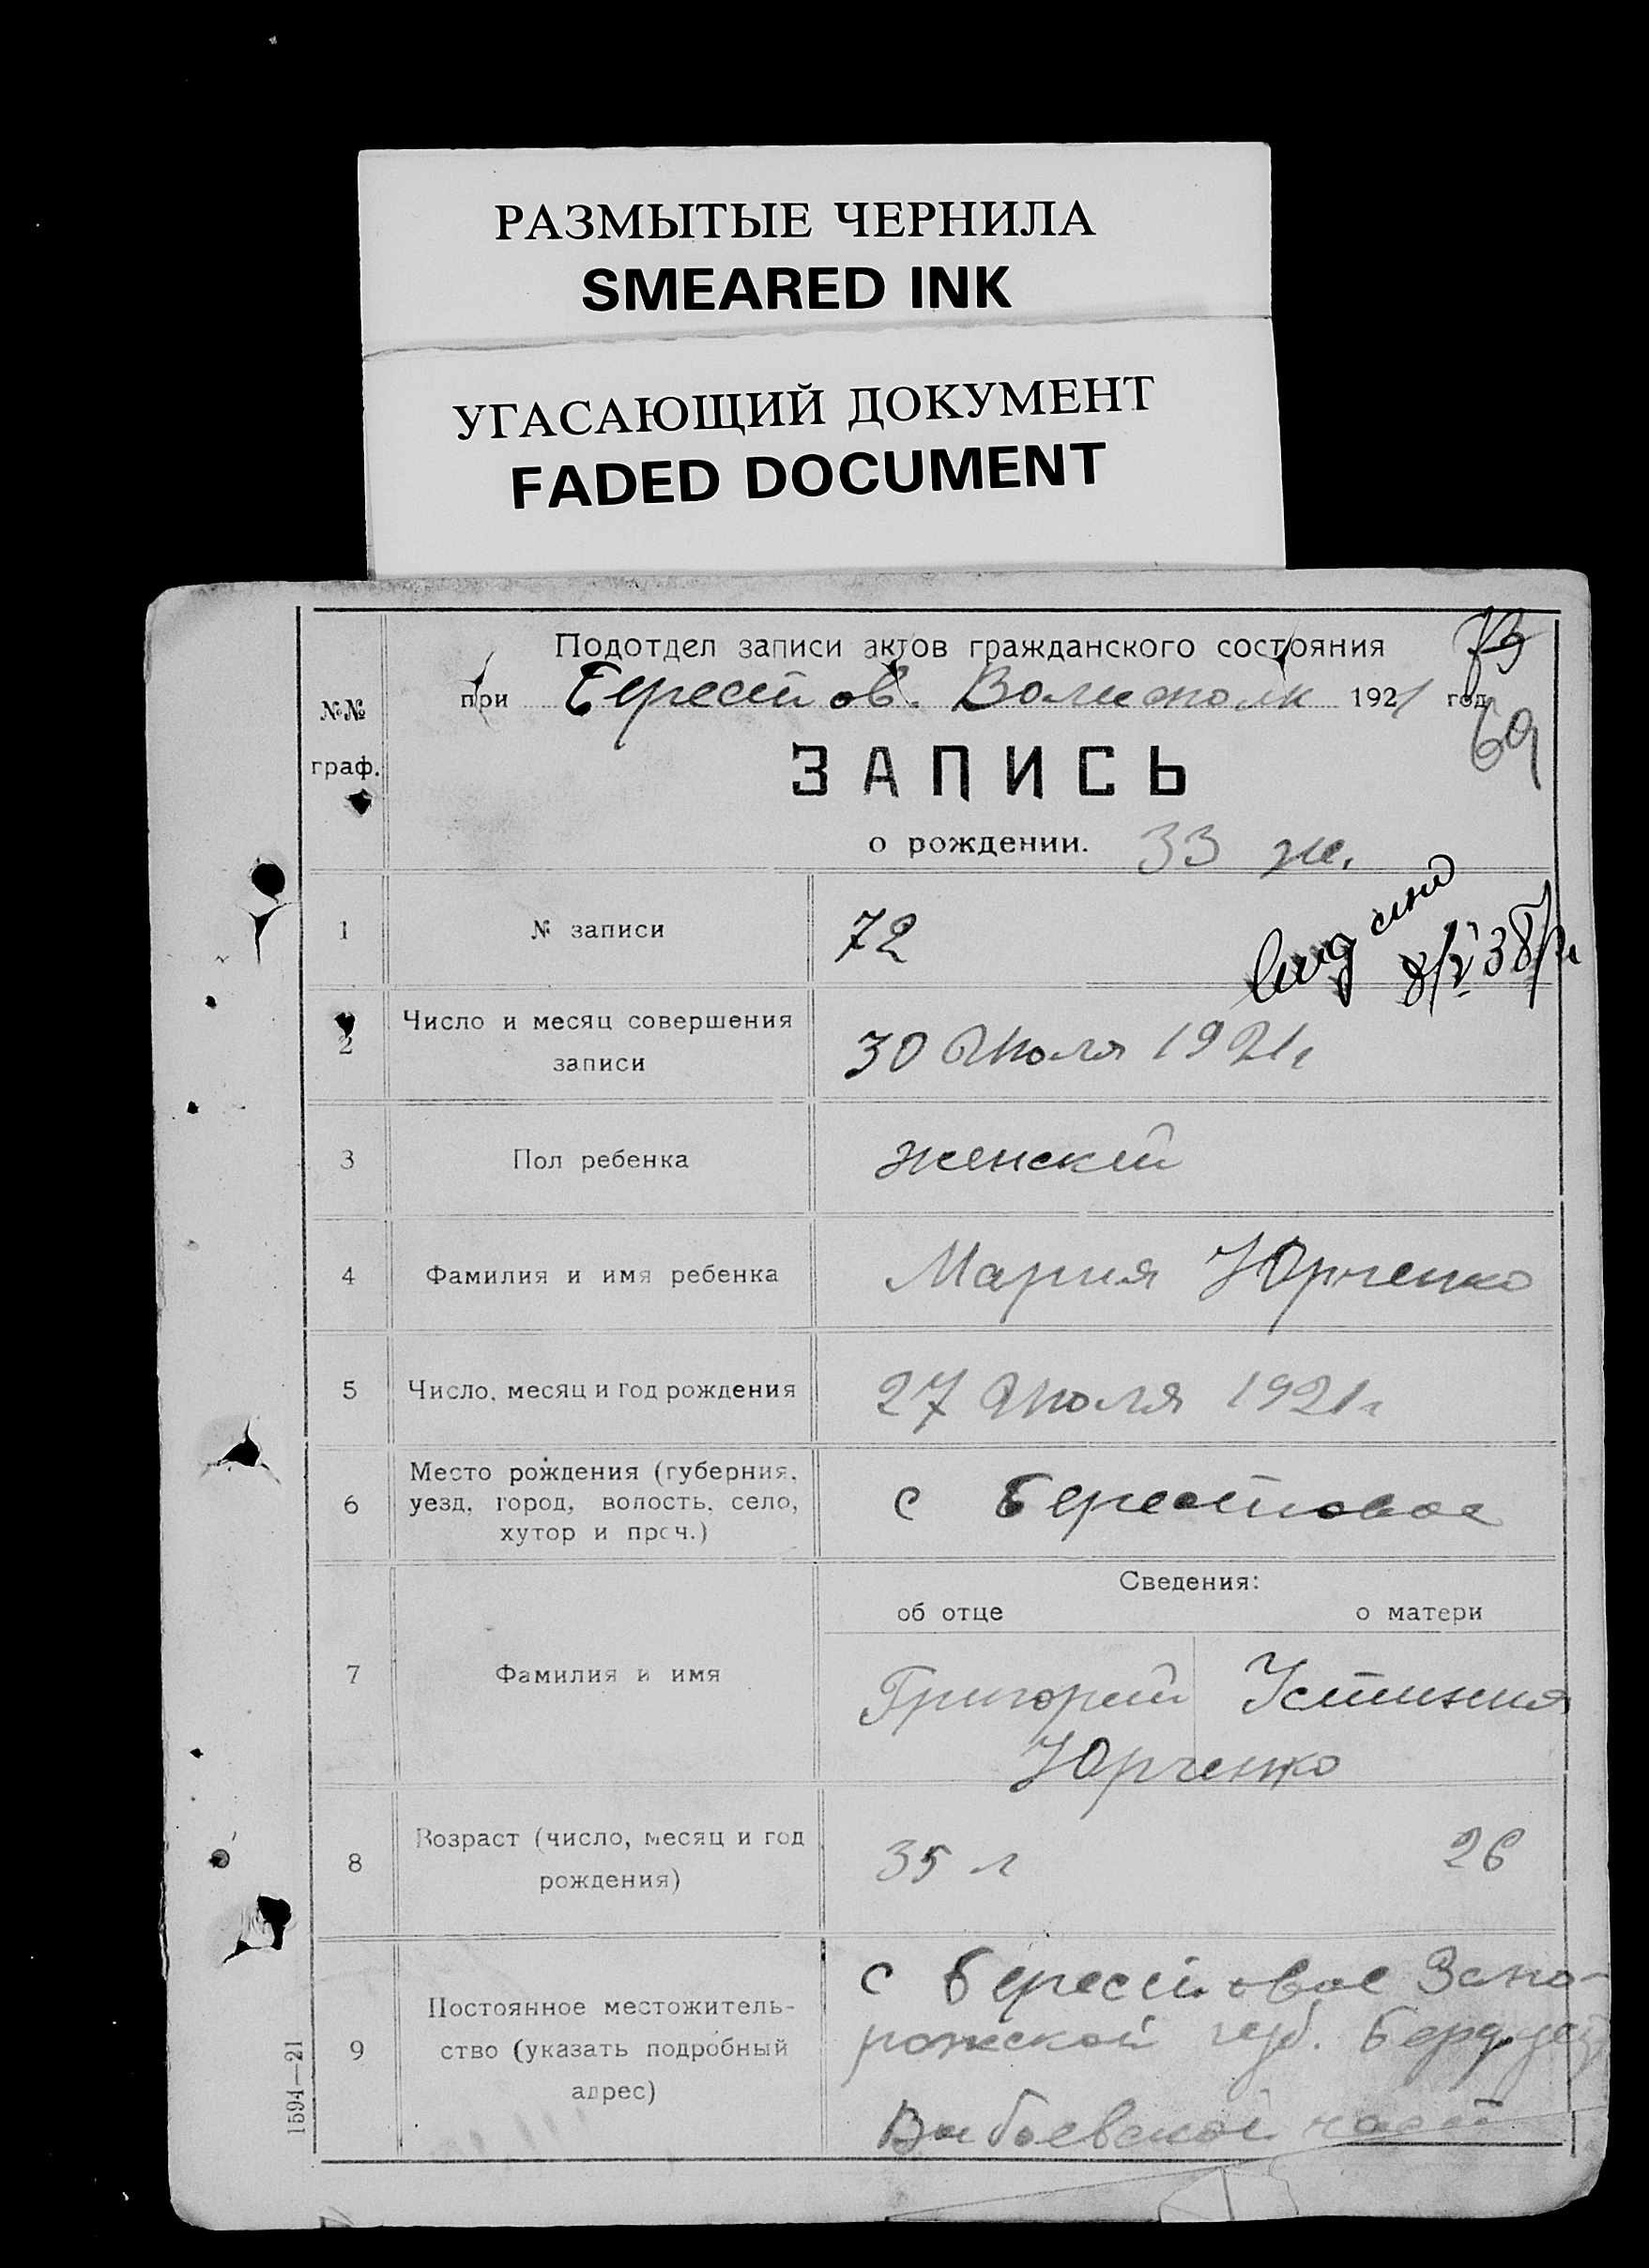 РАЗМЫТЫЕ ЧЕРНИЛА
SMEARED INK
УГАСАЮЩИЙ ДОКУМЕНТ
FADED DOCUMENT
Подотдел записи актов гражданского состояния 73
при Берестов. Волисполк 1921 год
69
№№
граф.
ЗАПИСЬ
о рождении. 33 ж.
1 № записи 72
2 Число и месяц совершения
записи 30 Июля 1921 г
3 Пол ребенка женский
4 Фамилия и имя ребенка Мария Юрченко
5 Число, месяц и год рождения 27 Июля 1921 г
6 Место рождения (губерния,
уезд, город, волость, село,
хутор и проч.) с Берестовое
Сведения:
об отце о матери
7 Фамилия и имя Григорий Устиния
Юрченко
8 Возраст (число, месяц и год
рождения) 35 л 26
9 Постоянное местожитель-
ство (указать подробный
адрес)
с Берестовое Запо-
рожской губ. Берд уезд
1594—21